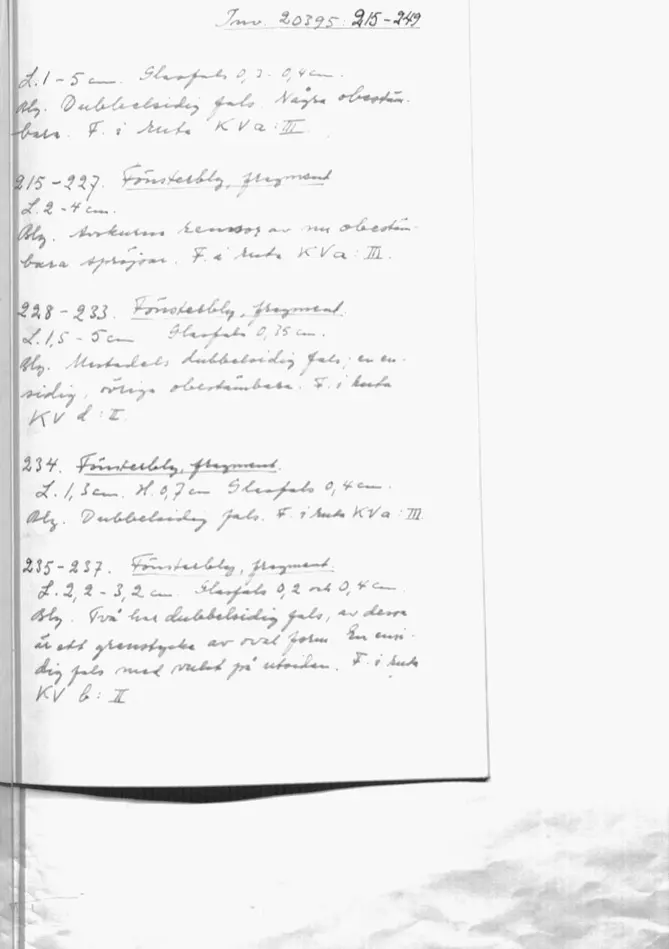 Inv. 20395: 215-249
L. 1-5 cm. Glasfals 0,3-0,4 cm.
Bly. Dubbelsidig fals. Några obestäm-
bara. F. i ruta KVa:III.
215-227. Fönsterbly, fragment
L. 2-4 cm.
Bly. Avskurna remsor av nu obestäm-
bara spröjsar. F. i ruta KVa:III.
228-233. Fönsterbly, fragment.
L. 1,5-5 cm Glasfals 0,35 cm.
Bly. Mestadels dubbelsidig fals; en en-
sidig, övriga obestämbara. F. i ruta
KV d:II.
234. Fönsterbly, fragment.
L. 1,3 cm. H. 0,7 cm Glasfals 0,4 cm.
Bly. Dubbelsidig fals. F. i ruta KVa:III.
235-237. Fönsterbly, fragment.
L. 2,2-3,2 cm. Glasfals 0,2 och 0,4 cm.
Bly. Två har dubbelsidig fals, av dessa
är ett grenstycke av oval form. En ensi-
dig fals med vulst på utsidan. F. i ruta
KV b:II